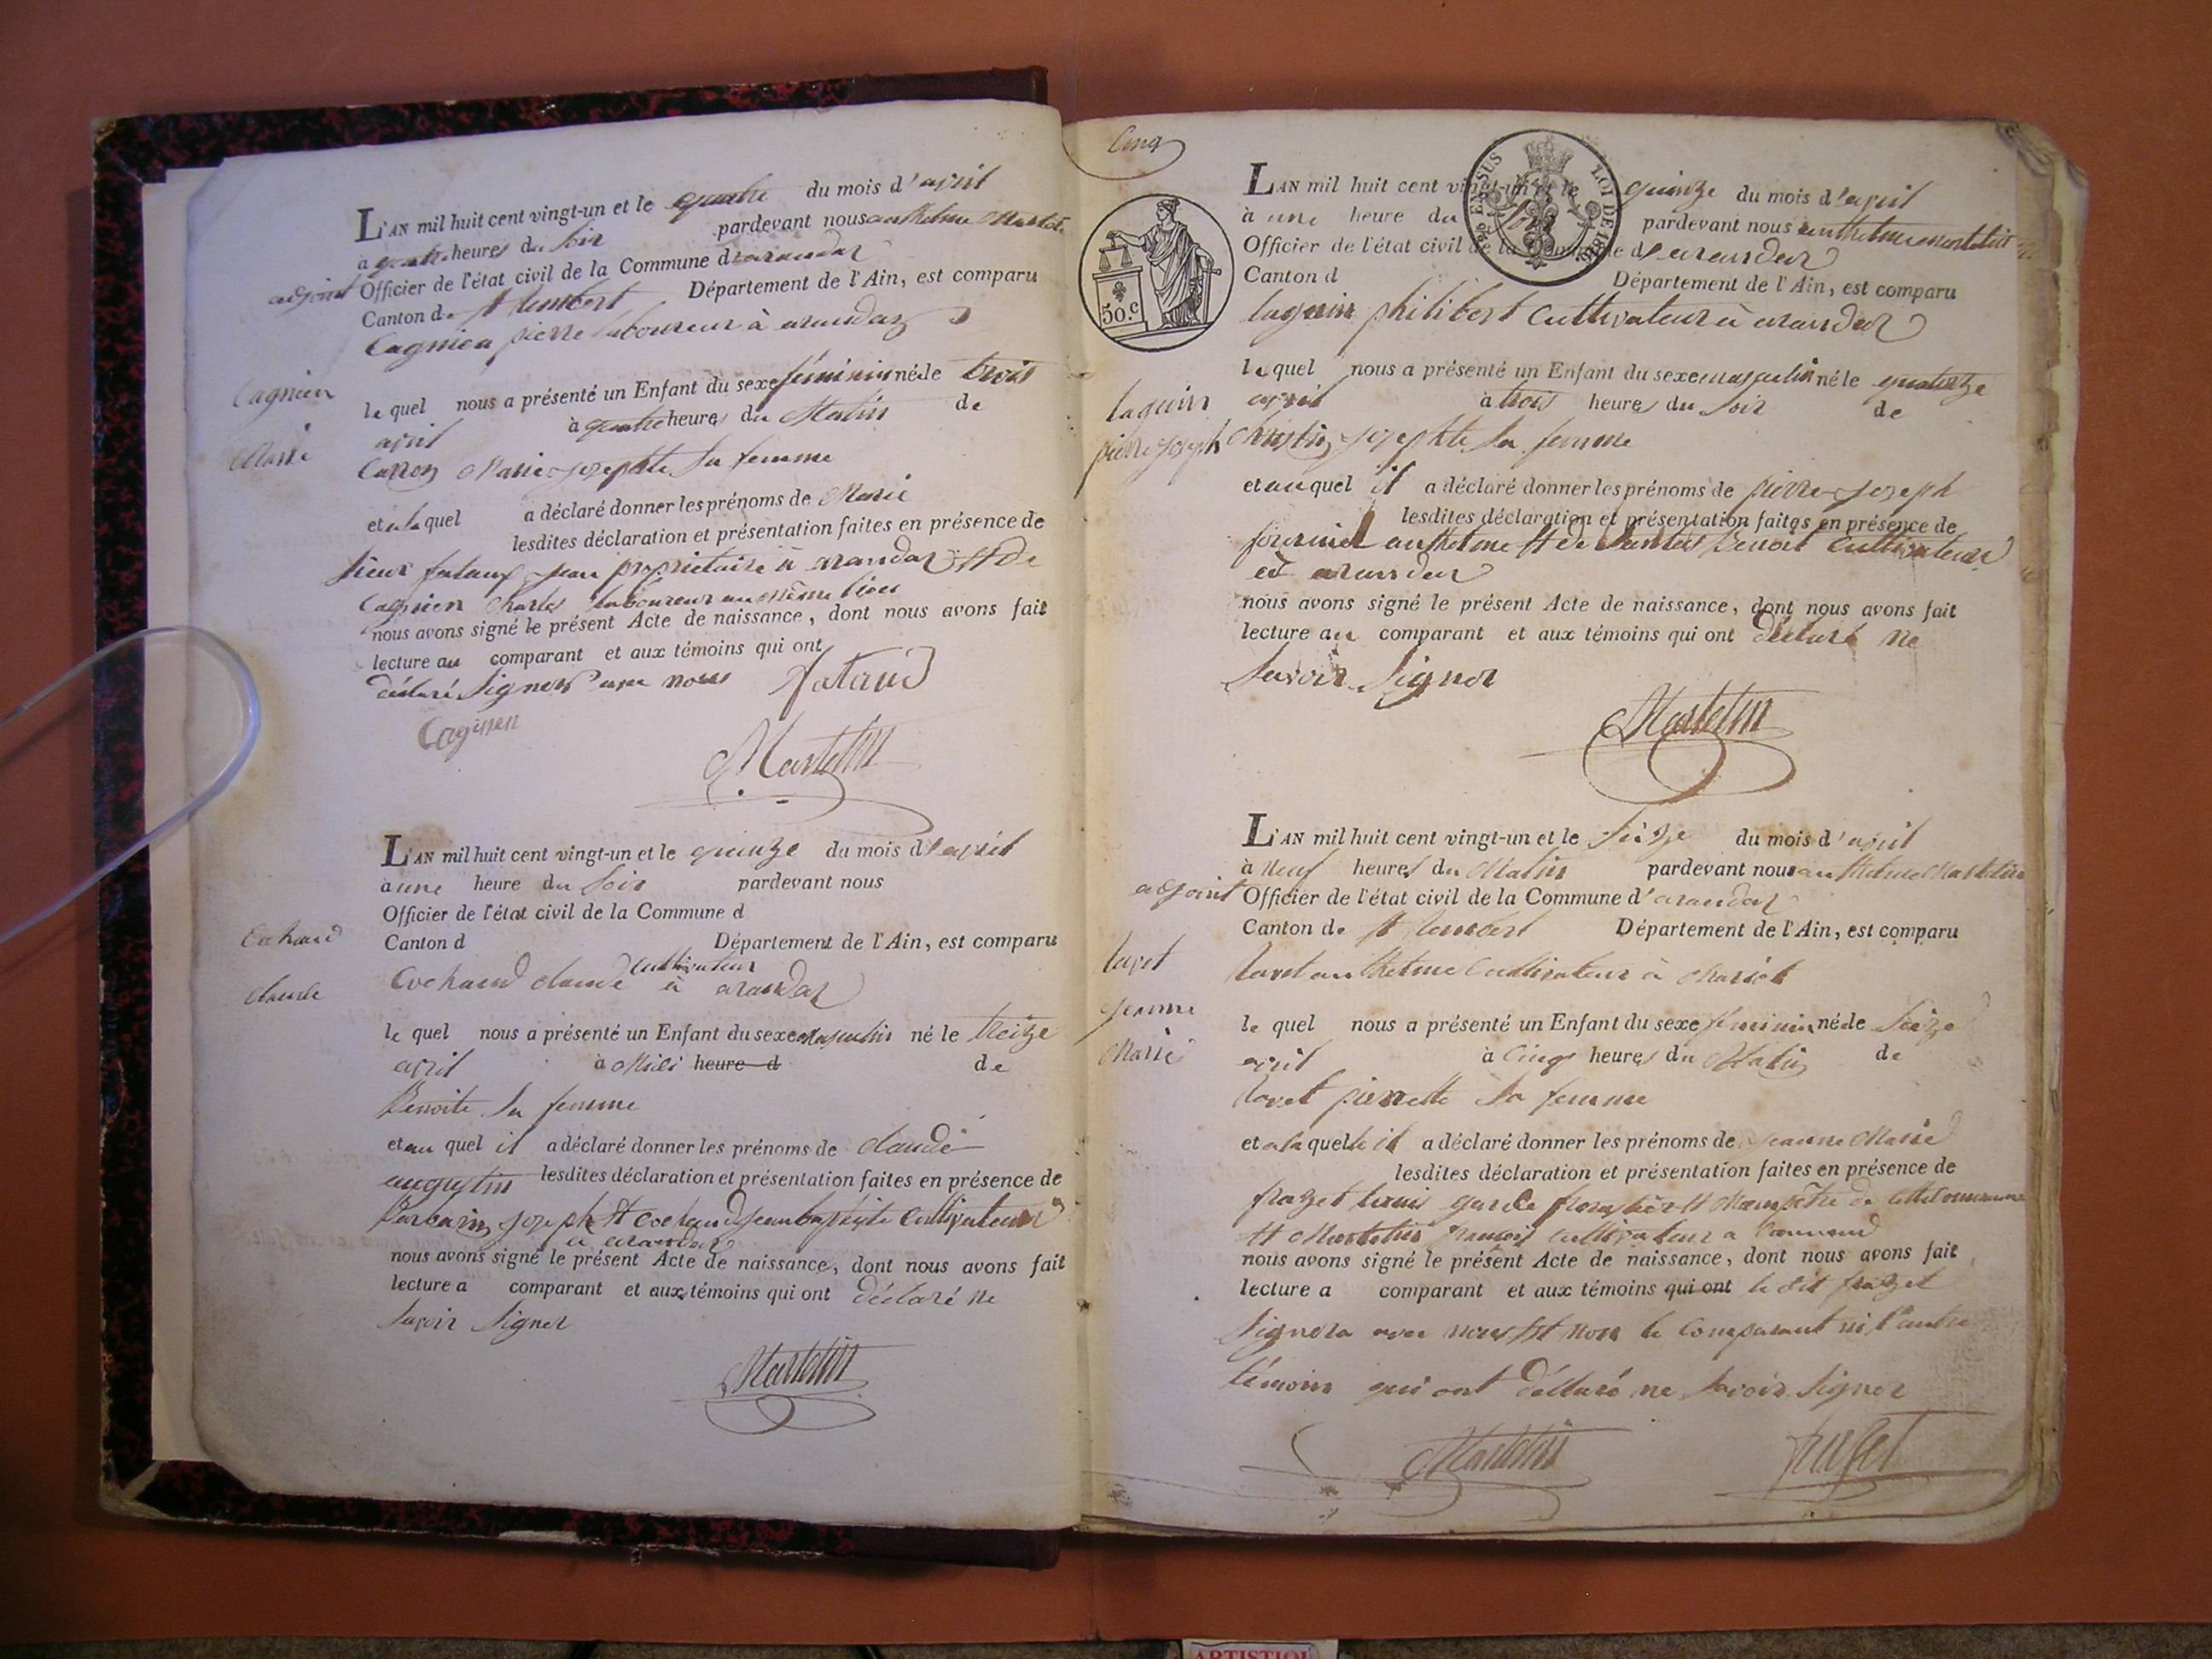 L'AN mil huit cent vingt-un et le quatre du mois d'avril
à quatre heures du soir pardevant nous anthelme Martelin
adjoint Officier de l'état civil de la Commune d'arandas
Canton de st Rembert Département de l'Ain, est comparu
Cagnien pierre laboureur à arandas
Cagnien
Marie
le quel nous a présenté un Enfant du sexe féminin née le trois
avril à quatre heures du Matin de
Carron Marie-josephte sa femme
et a la quel a déclaré donner les prénoms de Marie
lesdites déclaration et présentation faites en présence de
sieur fataud jean propriétaire à arandas Et de
Cagnien Charles laboureur au même lieu
nous avons signé le présent Acte de naissance, dont nous avons fait
lecture au comparant et aux témoins qui ont
déclaré signer avec nous fataud
Cagnien
Martelin
L'AN mil huit cent vingt-un et le quinze du mois d'avril
à une heure du soir pardevant nous
Officier de l'état civil de la Commune d
Canton d Département de l'Ain, est comparu
Cochand claude cultivateur
à arandas
Cochand
claude
le quel nous a présenté un Enfant du sexe masculin né le treize
avril à Midi heure d de
Benoite sa femme
et au quel il a déclaré donner les prénoms de claude
augustin lesdites déclaration et présentation faites en présence de
joseph Et Cochand jean baptiste cultivateurs
à arandas
nous avons signé le présent Acte de naissance, dont nous avons fait
lecture a comparant et aux témoins qui ont déclaré ne
savoir signer
Martelin
Cinq
5o.c
EN SUS LOI DE
L'AN mil huit cent vingt-un et le quinze du mois d'avril
à une heure du soir pardevant nous anthelme martelin
Officier de l'état civil de la Commune d'arandas
Canton d Département de l'Ain, est comparu
laguin philibert Cultivateur à arandas
laguin
pierre joseph
le quel nous a présenté un Enfant du sexe masculin né le quatorze
avril à trois heures du soir de
josephte sa femme
et au quel il a déclaré donner les prénoms de pierre-joseph
lesdites déclaration et présentation faites en présence de
anthelme Et de Benoit Cultivateurs
à arandas
nous avons signé le présent Acte de naissance, dont nous avons fait
lecture au comparant et aux témoins qui ont déclaré ne
savoir signer
Martelin
L'AN mil huit cent vingt-un et le seize du mois d'avril
à neuf heures du Matin pardevant nous anthelme Martelin
adjoint Officier de l'état civil de la Commune d'arandas
Canton de st Rembert Département de l'Ain, est comparu
anthelme Cultivateur à
jeanne
Marie
le quel nous a présenté un Enfant du sexe féminin née le seize
avril à Cinq heures du Matin de
pierrette sa femme
et a la quelle il a déclaré donner les prénoms de jeanne Marie
lesdites déclaration et présentation faites en présence de
frazet garde Et Champêtre de cette Commune
Et Martelin françois cultivateur a
nous avons signé le présent Acte de naissance, dont nous avons fait
lecture a comparant et aux témoins qui ont le dit frazet
signera avec nous Et non le comparant ni l'autre
témoin qui ont déclaré ne savoir signer
Martelin frazet
ARTISTIQU